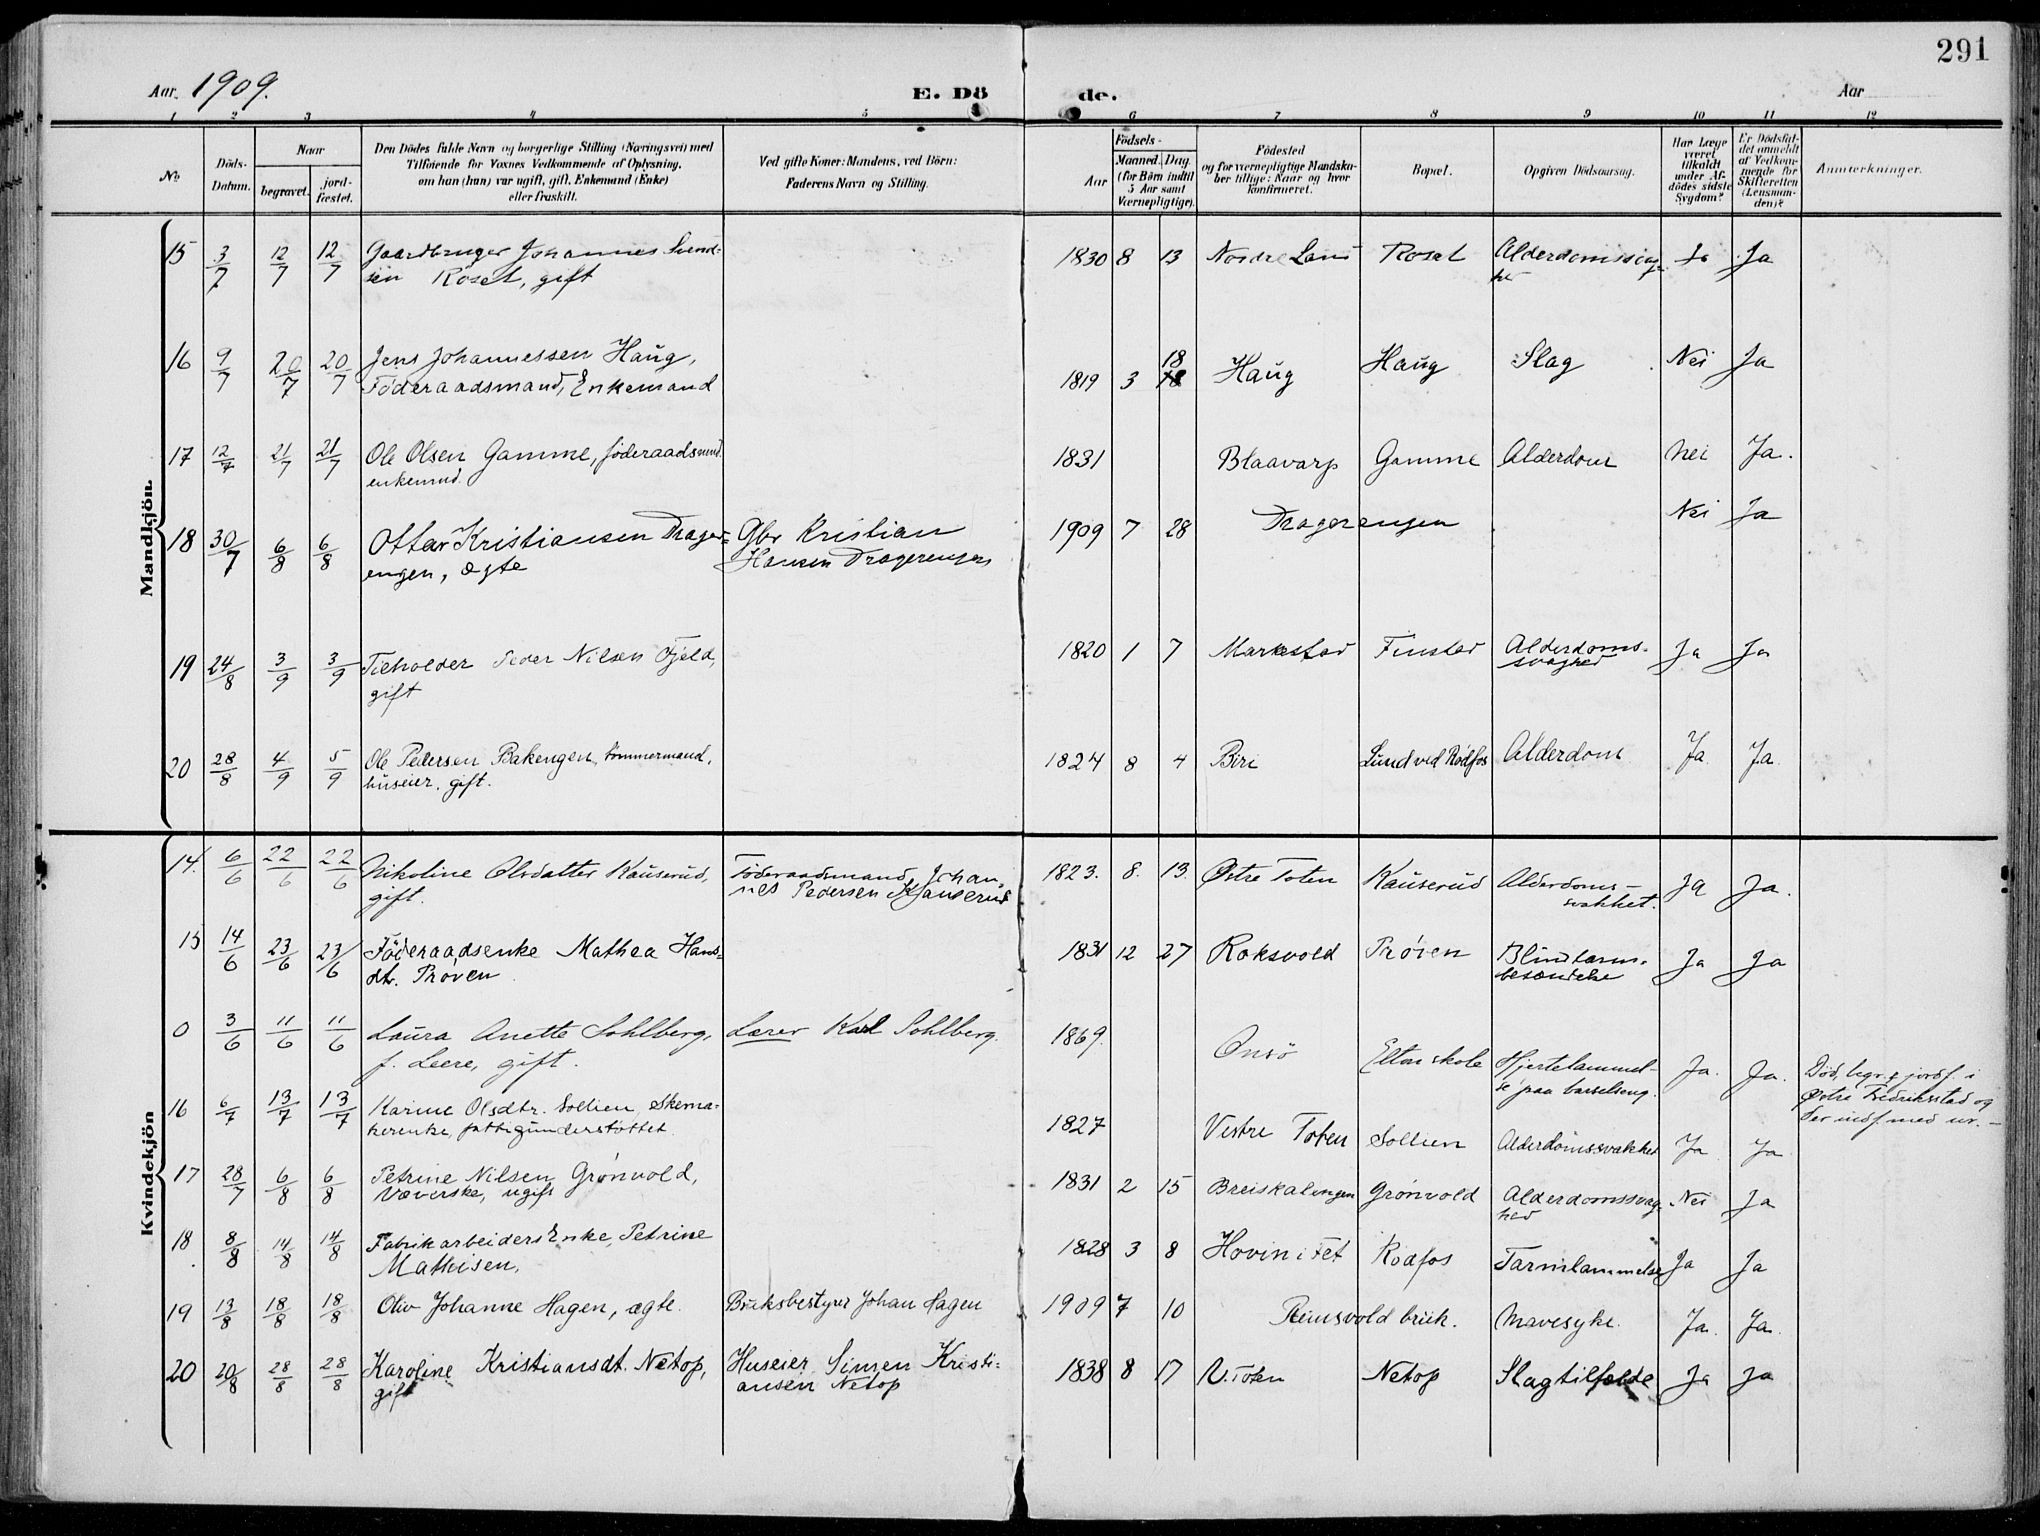 291
Aar 1909.
E. Döde.
Aar
1 2 3 4 5 6 7 8 9 10 11 12
№
Döds-Datum.
Naar
begravet.
jord-fæstet.
Den Dödes fulde Navn og borgerlige Stilling (Næringsvei) med
Tilföiende for Voxnes Vedkommende af Oplysning,
om han (hun) var ugift, gift, Enkemand (Enke)
eller fraskilt.
Ved gifte Koner: Mandens, ved Börn:
Faderens Navn og Stilling.
Födsels-
Aar
Maaned. Dag
(for Börn indtil
5 Aar samt
Værnepligtige).
Födested
og for værnepligtige Mandska-
ber tillige: Naar og hvor
konfirmeret.
Bopæl.
Opgiven Dödsaarsag.
Har Læge
været
tilkaldt
under Af-
dödes sidste
Sygdom?
Er Dödsfal-
det anmeldt
af Vedkom-
mende for
Skifteretten
(Lensman-
den)?
Anmerkninger.
Mandkjön.
15 3/7 12/7 12/7 Gaardbruger Johannes Svend- 1830 8 13 Nordre Land Roset Alderdomssvag- Ja Ja
sen Roset, gift hed
16 9/7 20/7 20/7 Jens Johannessen Haug, 18 Haug Slag Nei Ja
Föderaadsmand, Enkemand 1819 3 18 Haug
17 12/7 21/7 21/7 Ole Olsen Gamme, föderaadsmnd. 1831 Blaavarp Gamme Alderdom Nei Ja.
enkemnd.
18 30/7 6/8 6/8 Ottar Kristiansen Drager- Gbr Kristian 1909 7 28 Dragerengen Nei Ja
engen, ægte Hansen Dragerengen
19 24/8 3/9 3/9 Peder Nilsen Fjeld, 1820 1 7 Markestad Finstad Alderdoms- Ja Ja
gift svaghed
20 28/8 4/9 5/9 Ole Pedersen Bakengen, tömmermand, 1824 8 4 Biri Lund ved Rødfos Alderdom Ja Ja.
huseier, gift.
Kvindekjön
14. 6/6 22/6 22/6 Nikoline Olsdatter Kauserud, Föderaadsmand Johan- 1823. 8. 13. Østre Toten Kauserud Alderdoms- Ja Ja.
gift. nes Pedersen Kauserud svakhet.
15 14/6 23/6 23/6 Föderaadsenke Mathea Hans- 1831 12 27 Roksvold Prøven Blindtarm- Ja Ja
dtr. Prøven betændelse
0 3/6 11/6 11/6 Laura Anette Sohlberg, Lærer Karl Sohlberg. 1869. Onsö Elton skole Hjertelammel- Ja. Ja. Död, begr. & jordf. i
f. Leere, gift. se paa barselseng. Østre Fredriksstad og
16 6/7 13/7 13/7 Karine Olsdtr. Sollien, Skoma- 1827 Vestre Toten Sollien Alderdomssvakhet Ja Ja her indf. med nr. –
kerenke, fattigunderstöttet.
17 28/7 6/8 6/8 Petrine Nilsen Grønvold, 1831 2 15 Breiskalengen Grønvold Alderdomssvag- Nei Ja
Væverske, ugift hed
18 8/8 14/8 14/8 Fabrikarbeiders Enke, Petrine 1828 3 8 Hovin i Fet Rødfos Tarmlammelse Ja Ja
Mathisen,
19 13/8 18/8 18/8 Oliv Johanne Hagen, ægte. Bruksbestyrer Johan Hagen 1909 7 10 Reinsvold bruk. Mavesyke. Ja. Ja.
20 20/8 28/8 28/8 Karoline Kristiansdt. Netop, Huseier Simen Kristi- 1838 8 17 V. Toten Netop Slagtilfælde Ja Ja
gift ansen Netop